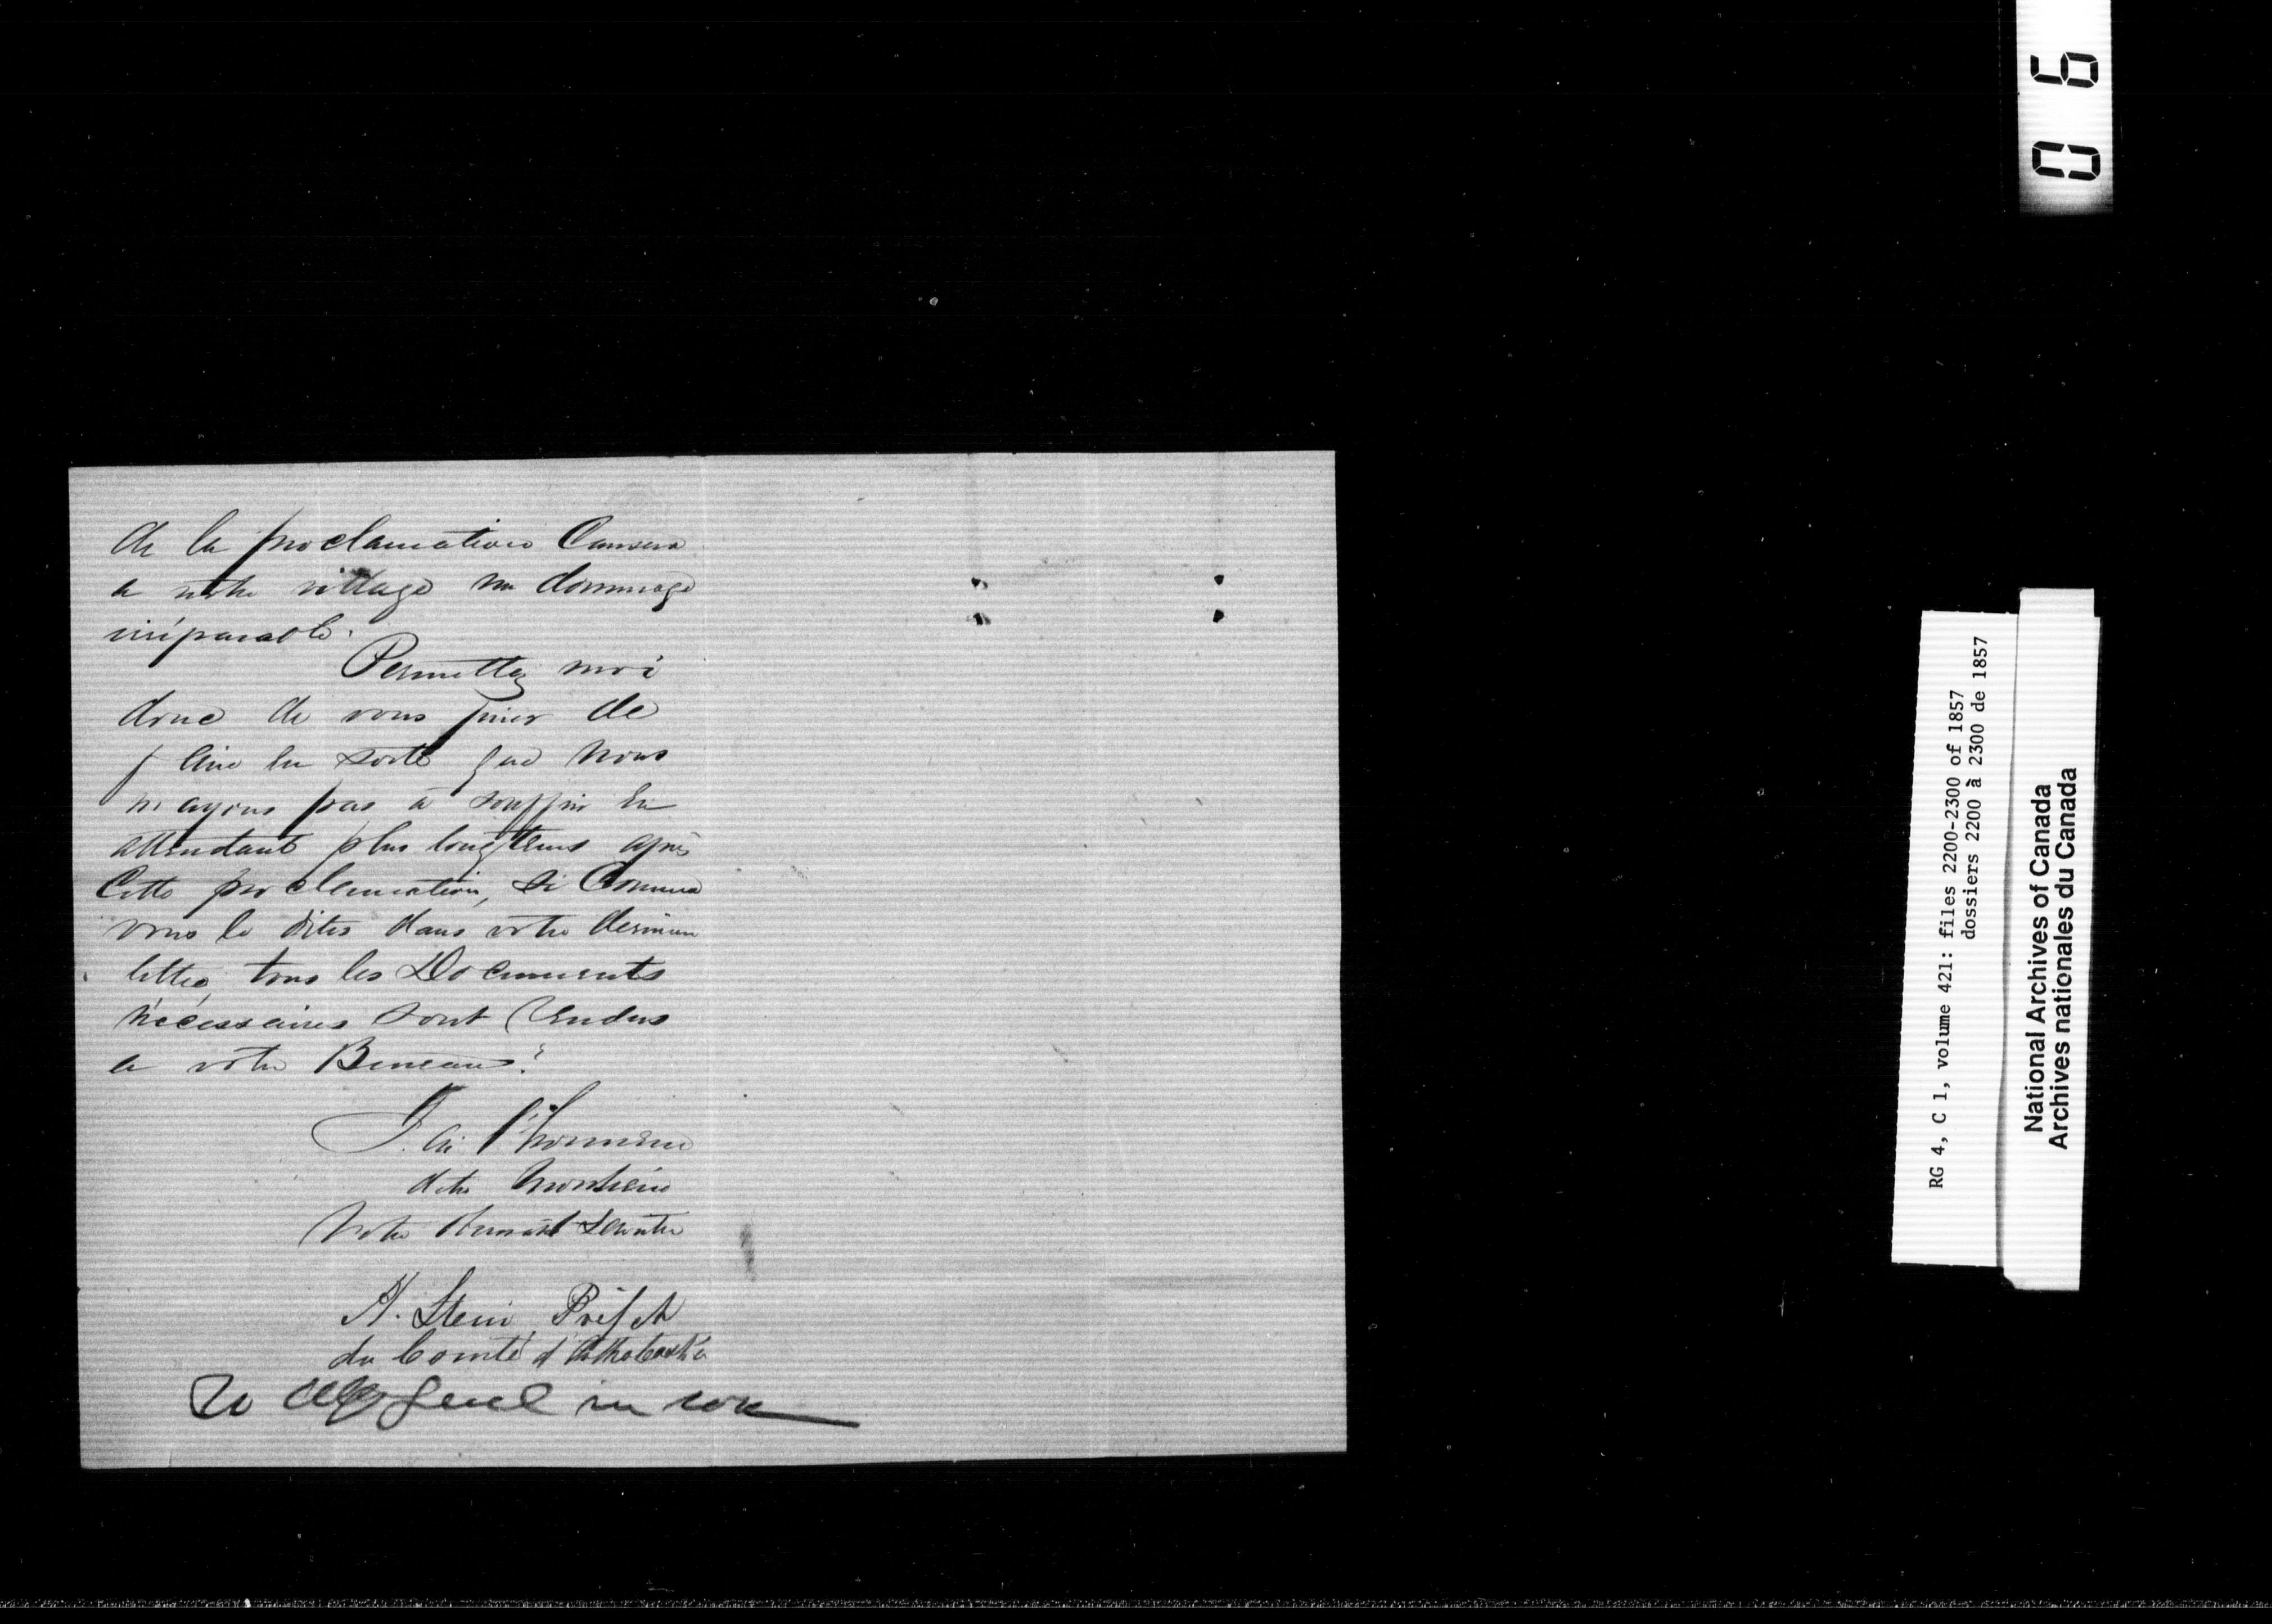 de la proclamation Causera
a notre village un dommage
iréparable.
Permettez moi
donc de vous prier de
faire en sorte que nous
n'ayons pas à souffrir en
attendant plus longtems après
Cette proclamation, si Comme
vous le dites dans votre dernière
lettre, tous les Documents
nécessaires sont rendus
a votre Bureau.
J'ai l'honneur
d'etre Monsieur
Votre humble serviteur
A. Stein Préfet
du Comté d'Arthabaska
To Atty Genl
0 6
RG 4, C 1, volume 421: files 2200-2300 of 1857
dossiers 2200 à 2300 de 1857
National Archives of Canada
Archives nationales du Canada